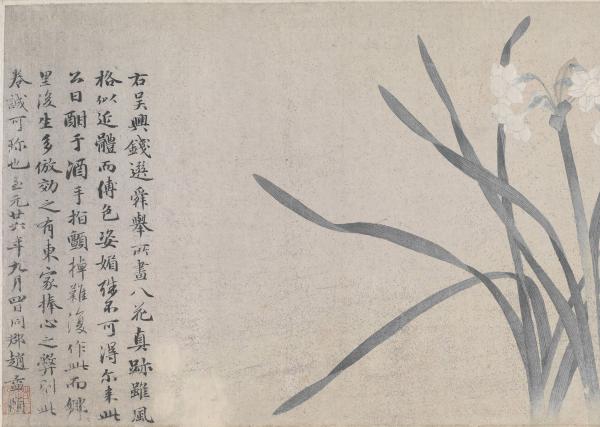 右吳興錢選舜舉所畫八花真跡雖風
格似近體而傅色姿媚殊不可得尒來此
公日酣于酒手指顫掉難復作此而鄉
里後生多倣効之有東家捧心之弊則此
卷誠可珎也至元廿六年九月四日同郡趙孟頫